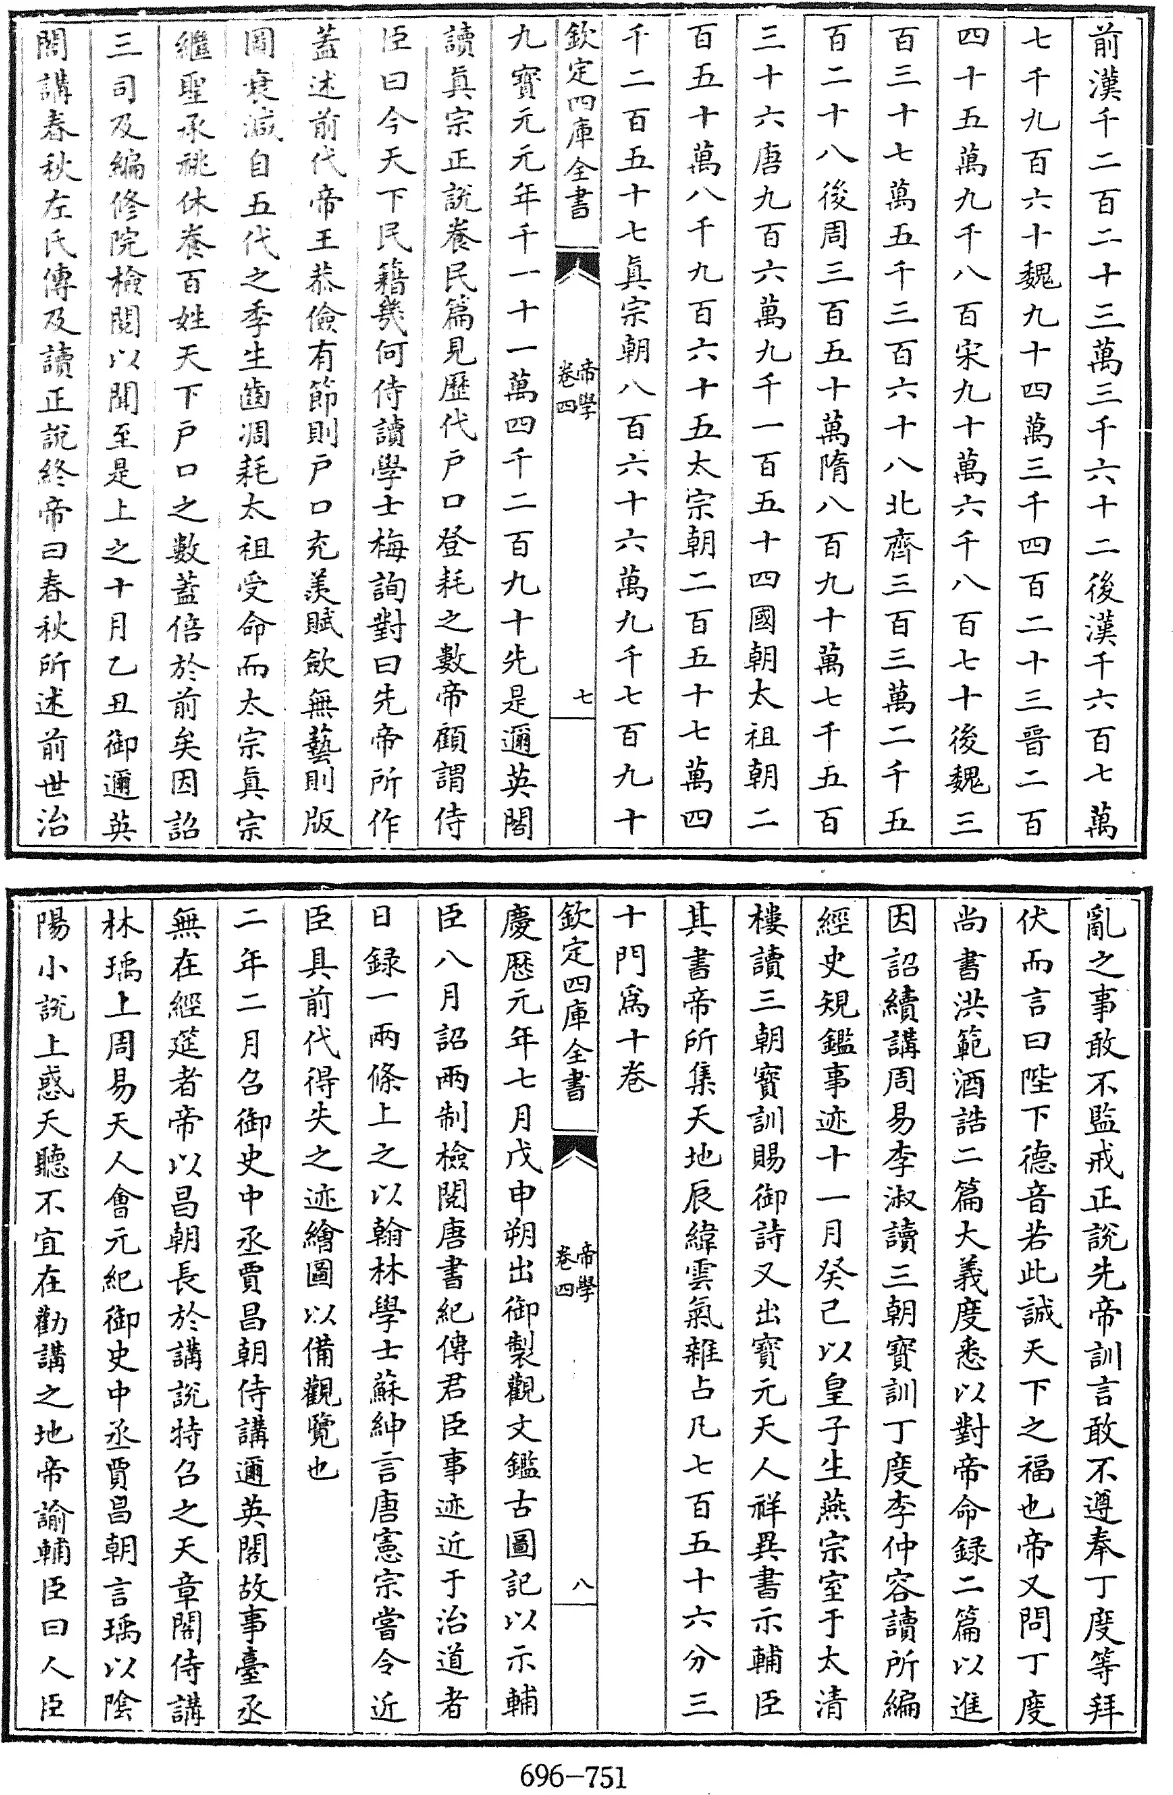 前漢千二百二十三萬三千六十二後漢千六百七萬
七千九百六十魏九十四萬三千四百二十三晉二百
四十五萬九千八百宋九十萬六千八百七十後魏三
百三十七萬五千三百六十八北齊三百三萬二千五
百二十八後周三百五十萬隋八百九十萬七千五百
三十六唐九百六萬九千一百五十四國朝太祖朝二
百五十萬八千九百六十五太宗朝二百五十七萬四
千二百五十七眞宗朝八百六十六萬九千七百九十
欽定四庫全書
帝學
卷四
七
九寳元元年千一十一萬四千二百九十先是邇英閣
讀眞宗正説養民篇見歷代户口登耗之數帝顧謂侍
臣曰今天下民籍幾何侍讀學士梅詢對曰先帝所作
蓋述前代帝王恭儉有節則户口充羡賦歛無藝則版
圖衰減自五代之季生齒凋耗太祖受命而太宗眞宗
繼聖承祧休養百姓天下户口之數蓋倍於前矣因詔
三司及編修院檢閲以聞至是上之十月乙丑御邇英
閣講春秋左氏傳及讀正説終帝曰春秋所述前世治
亂之事敢不監戒正説先帝訓言敢不遵奉丁度等拜
伏而言曰陛下德音若此誠天下之福也帝又問丁度
尚書洪範酒誥二篇大義度悉以對帝命録二篇以進
因詔續講周易李淑讀三朝寳訓丁度李仲容讀所編
經史規鑑事迹十一月癸已以皇子生燕宗室于太清
樓讀三朝寳訓賜御詩又出寳元天人祥異書示輔臣
其書帝所集天地辰緯雲氣雜占凡七百五十六分三
十門爲十卷
欽定四庫全書
帝學
卷四
八
慶歷元年七月戊申朔出御製觀文鑑古圖記以示輔
臣八月詔兩制檢閲唐書紀傳君臣事迹近于治道者
日録一兩條上之以翰林學士蘇紳言唐憲宗嘗令近
臣具前代得失之迹繪圖以備觀覽也
二年二月召御史中丞賈昌朝侍講邇英閣故事臺丞
無在經筵者帝以昌朝長於講説特召之天章閣侍講
林瑀上周易天人會元紀御史中丞賈昌朝言瑀以陰
陽小説上惑天聽不宜在勸講之地帝諭輔臣曰人臣
696-751